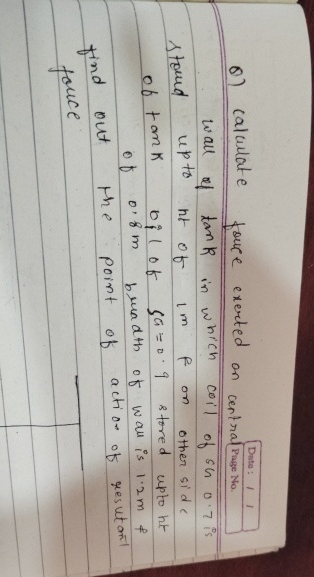 Date: / /
Page No.
Q) calculate force exerted on central
wall of tank in which coil of SG 0.7 is
stored upto ht of 1m & on other side
of tank oil of SG = 0.9 stored upto ht
of 0.8m breadth of wall is 1.2m &
find out the point of action of resultant
force